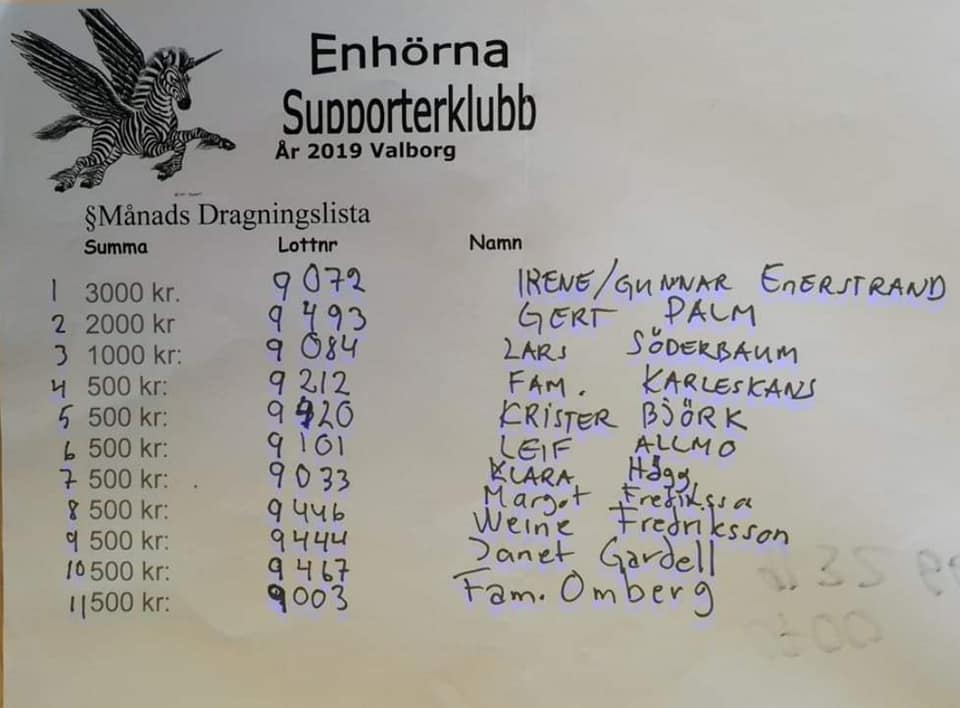 Enhörna
Supporterklubb
År 2019 Valborg
§Månads Dragningslista
Summa Lottnr Namn
1 3000 kr. 9072 IRENE/GUNNAR ENERSTRAND
2 2000 kr 9493 GERT PALM
3 1000 kr: 9084 LARS SÖDERBAUM
4 500 kr: 9212 FAM. KARLESKANS
5 500 kr: 9920 KRISTER BJÖRK
6 500 kr: 9101 LEIF ALLMO
7 500 kr: 9033 KLARA Hägg
8 500 kr: 9446 Margot
9 500 kr: 9444 Weine Fredriksson
10 500 kr: 9467 Janet Gardell
11 500 kr: 9003 Fam. Omberg